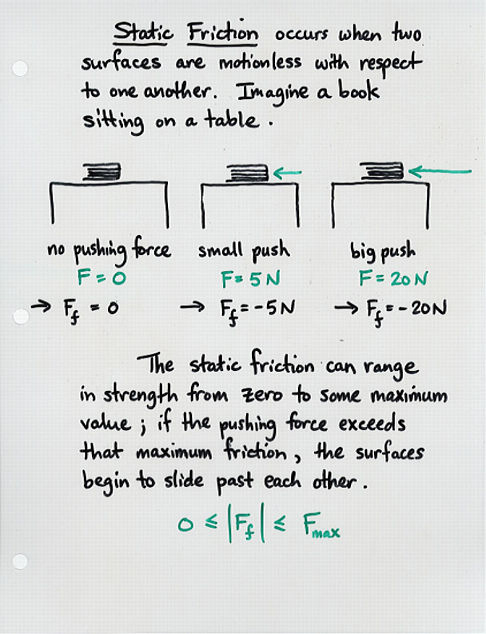 Static Friction occurs when two
surfaces are motionless with respect
to one another. Imagine a book
sitting on a table.
no pushing force small push big push
F = 0 F = 5 N F = 20 N
→ F_f = 0 → F_f = -5 N → F_f = -20 N
The static friction can range
in strength from zero to some maximum
value; if the pushing force exceeds
that maximum friction, the surfaces
begin to slide past each other.
0 ≤ |F_f| ≤ F_max